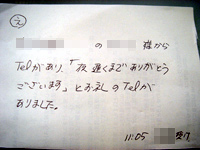 え
の 様から
Telがあり、「夜遅くまでありがとう
ございます」とお礼のTelが
ありました。
11:05 受け